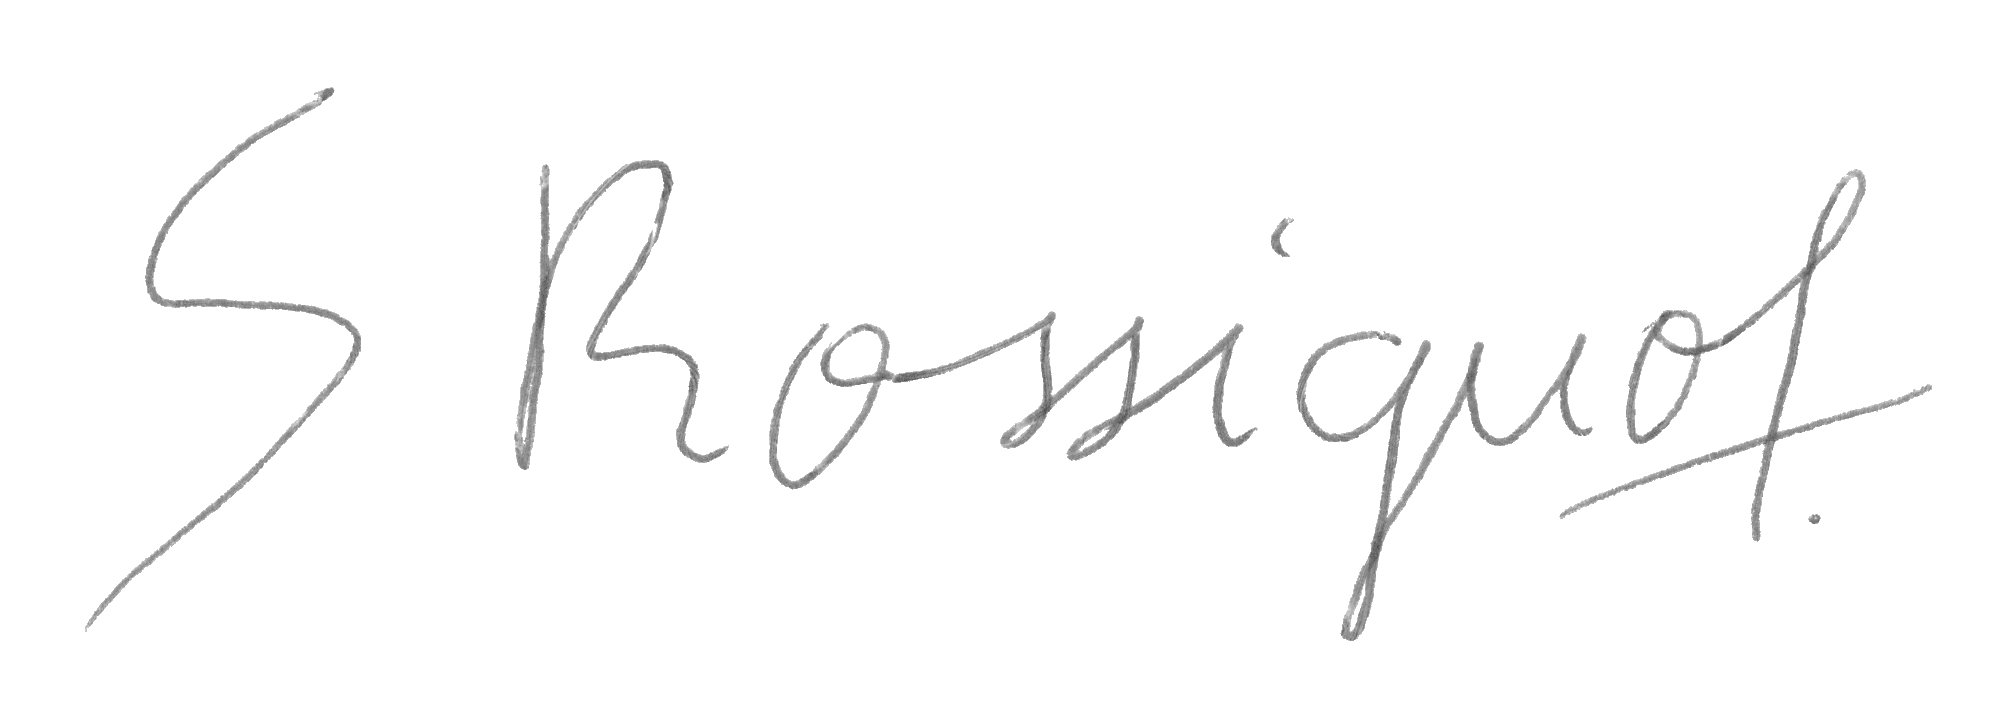 S Rossignol.